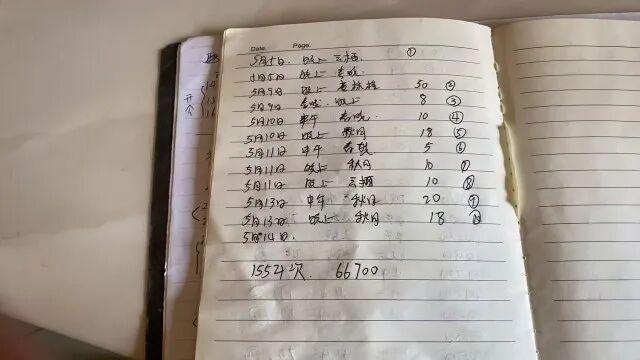 Date. Page.
5月5日. 晚上 云栖 ①
5月5日 晚上 春晓
5月9日 晚上 50 ②
5月9日 春晓 晚上 8 ③
5月10日 中午 春晓 10 ④
5月10日 晚上 秋月 18 ⑤
5月11日 中午 春晓 5 ⑥
5月11日 晚上 秋月 10 ⑦
5月11日 晚上 云栖 10 ⑧
5月13日 中午 秋月 20 ⑨
5月13日 晚上 秋月 18 ⑩
5月14日.
1554次. 66700
开会
14
15
16